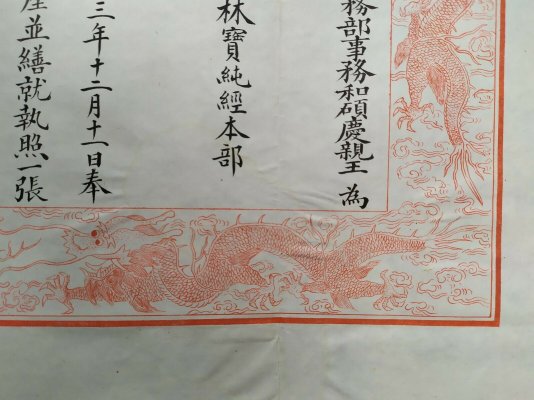 務部事務和碩慶親王為
林寶純經本部
三年十二月十一日奉
並繕就執照一張